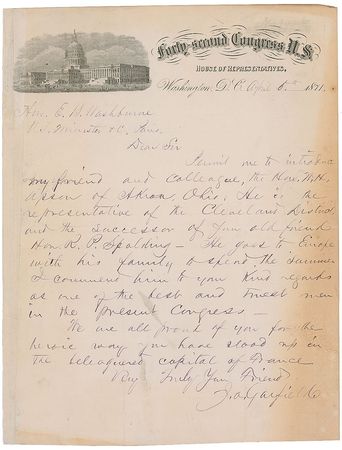 Forty-second Congress U.S.
House of Representatives,
Washington, D.C. April 8th 1871.
Hon. E. B. Washburne
U.S. Minister &C, Paris
Dear Sir
Permit me to introduce
my friend and colleague, the Hon. W. H.
Upson of Akron, Ohio. He is the
representative of the Cleveland District
and the successor of your old friend
Hon. R. P. Spalding – He goes to Europe
with his family to spend the summer
I commend him to your kind regards
as one of the best and truest men
in the present Congress –
We are all proud of you for the
heroic way you have stood up in
the beleaguered capital of France
Very Truly Your Friend
J. A. Garfield